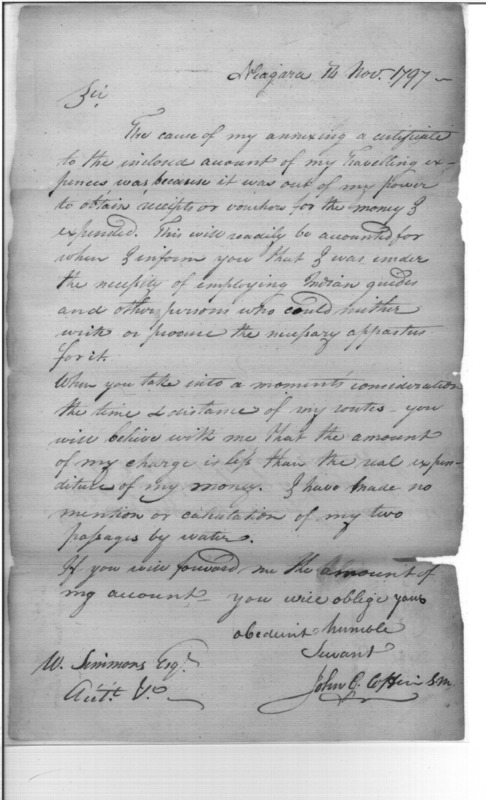 Niagara Nov. 1797
Sir
The cause of my annexing a certificate
to the inclosed account of my Travelling ex-
pences was because it was out of my power
to obtain receipts or vouchers for the money I
expended. This will readily be accounted for
when I inform you that I was under
the necessity of employing Indian guides
and other persons who could neither
write or procure the necessary apparatus
for it.
When you take into a moments consideration
the time & distance of my routes – you
will believe with me that the amount
of my charge is less than the real expen-
diture of my money. I have made no
mention or calculation of my two
passages by water.
If you will forward me the amount of
my account – you will oblige your
obedient humble
Servant
W. Simmons Esqr.
John C. Coffin